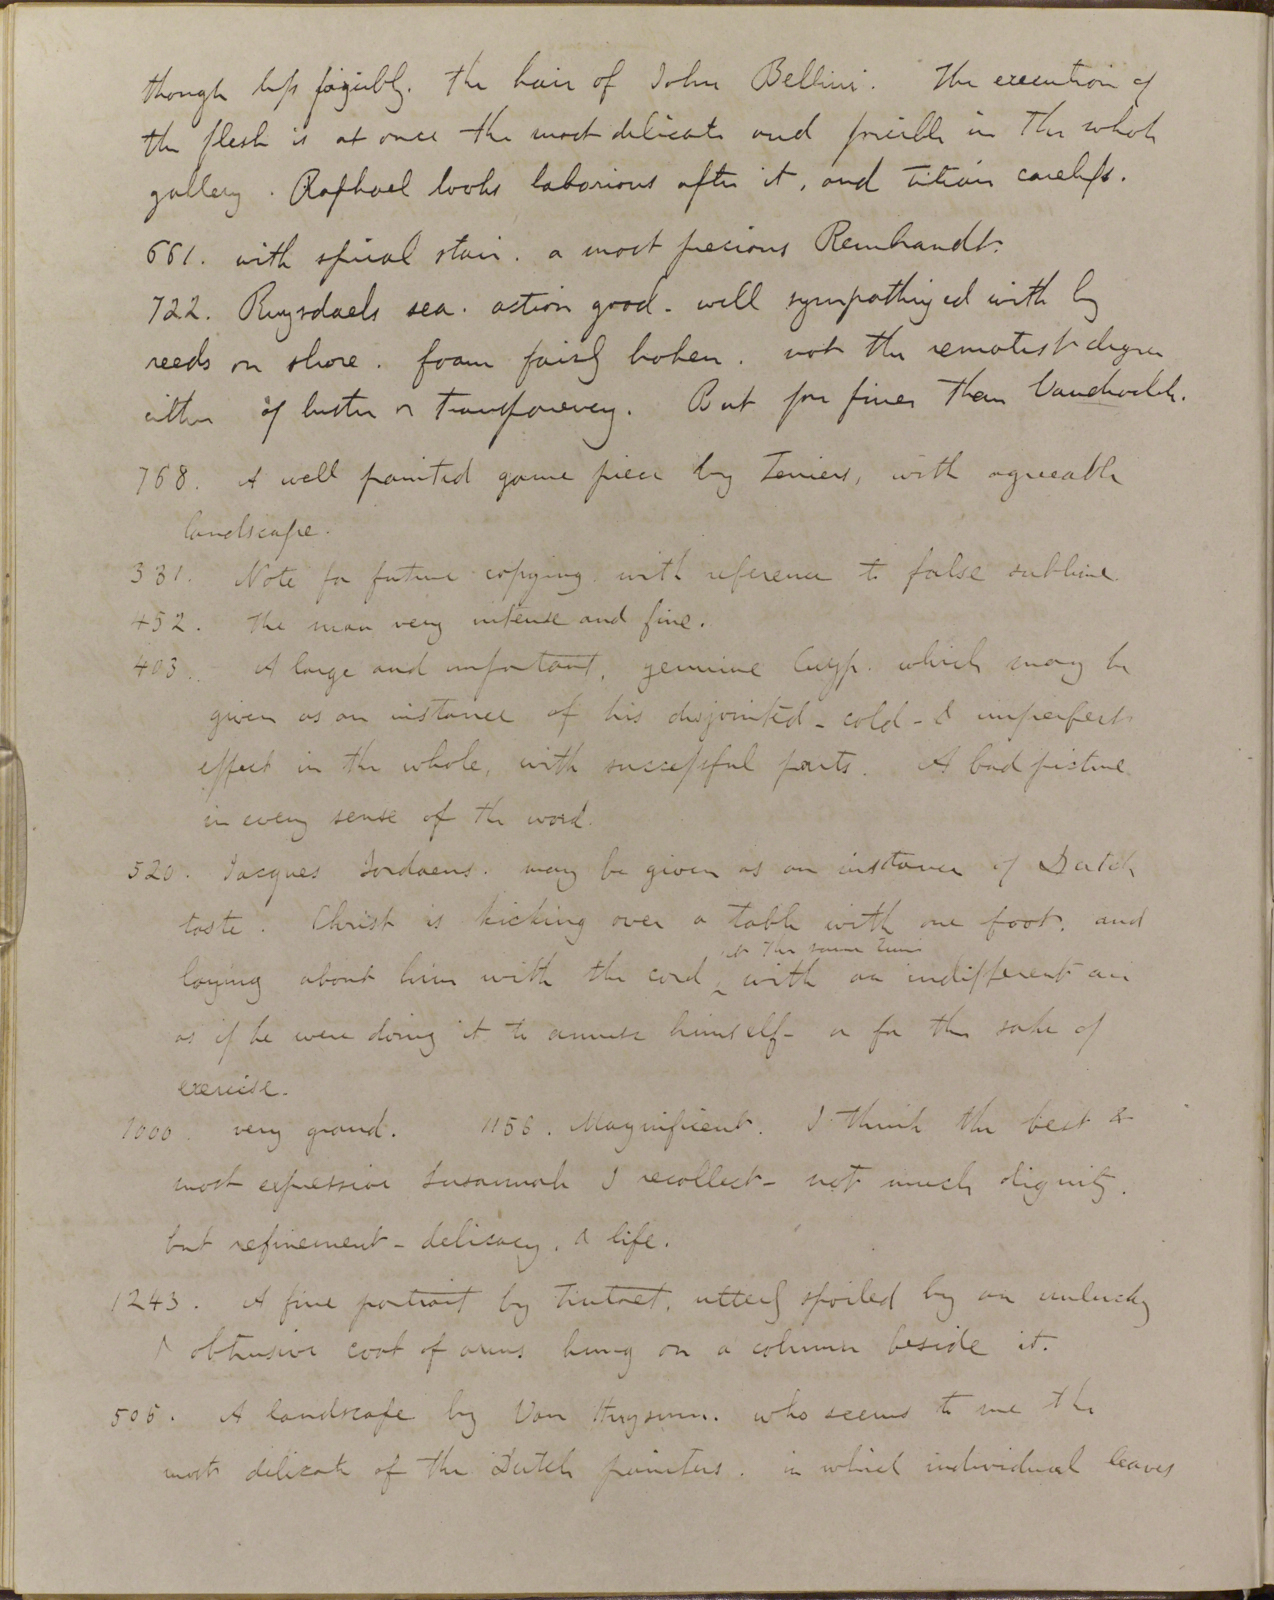 though less forcibly. the hair of John Bellini. The execution of
the flesh is at once the most delicate and forcible in the whole
gallery. Raphael looks laborious after it, and Titian careless.
661. with spiral stair. a most precious Rembrandt.
722. Ruysdaels sea. action good - well sympathized with by
reeds on shore. foam fairly broken. not the remotest degree
either of lustre or transparency. But far finer than Vandevelde.
768. A well painted game piece by Teniers, with agreeable
landscape.
331. Note for future copying with reference to false sublime.
452. The man very intense and fine.
403. A large and important, genuine Cuyp. which may be
given as an instance of his disjointed - cold - & imperfect
effect in the whole, with successful parts. A bad picture
in every sense of the word.
520. Jacques Jordaens. may be given as an instance of Dutch
taste. Christ is kicking over a table with one foot, and
at the same time
laying about him with the cord ^ with an indifferent air
as if he were doing it to amuse himself - or for the sake of
exercise.
1000. very grand. 1156. Magnificent. I think the best &
most expressive Susannah I recollect - not much dignity.
but refinement - delicacy, & life.
1243. A fine portrait by Tintoret, utterly spoiled by an unlucky
& obtrusive coat of arms hung on a column beside it.
505. A landscape by Van Huysum. who seems to me the
most delicate of the Dutch painters. in which individual leaves